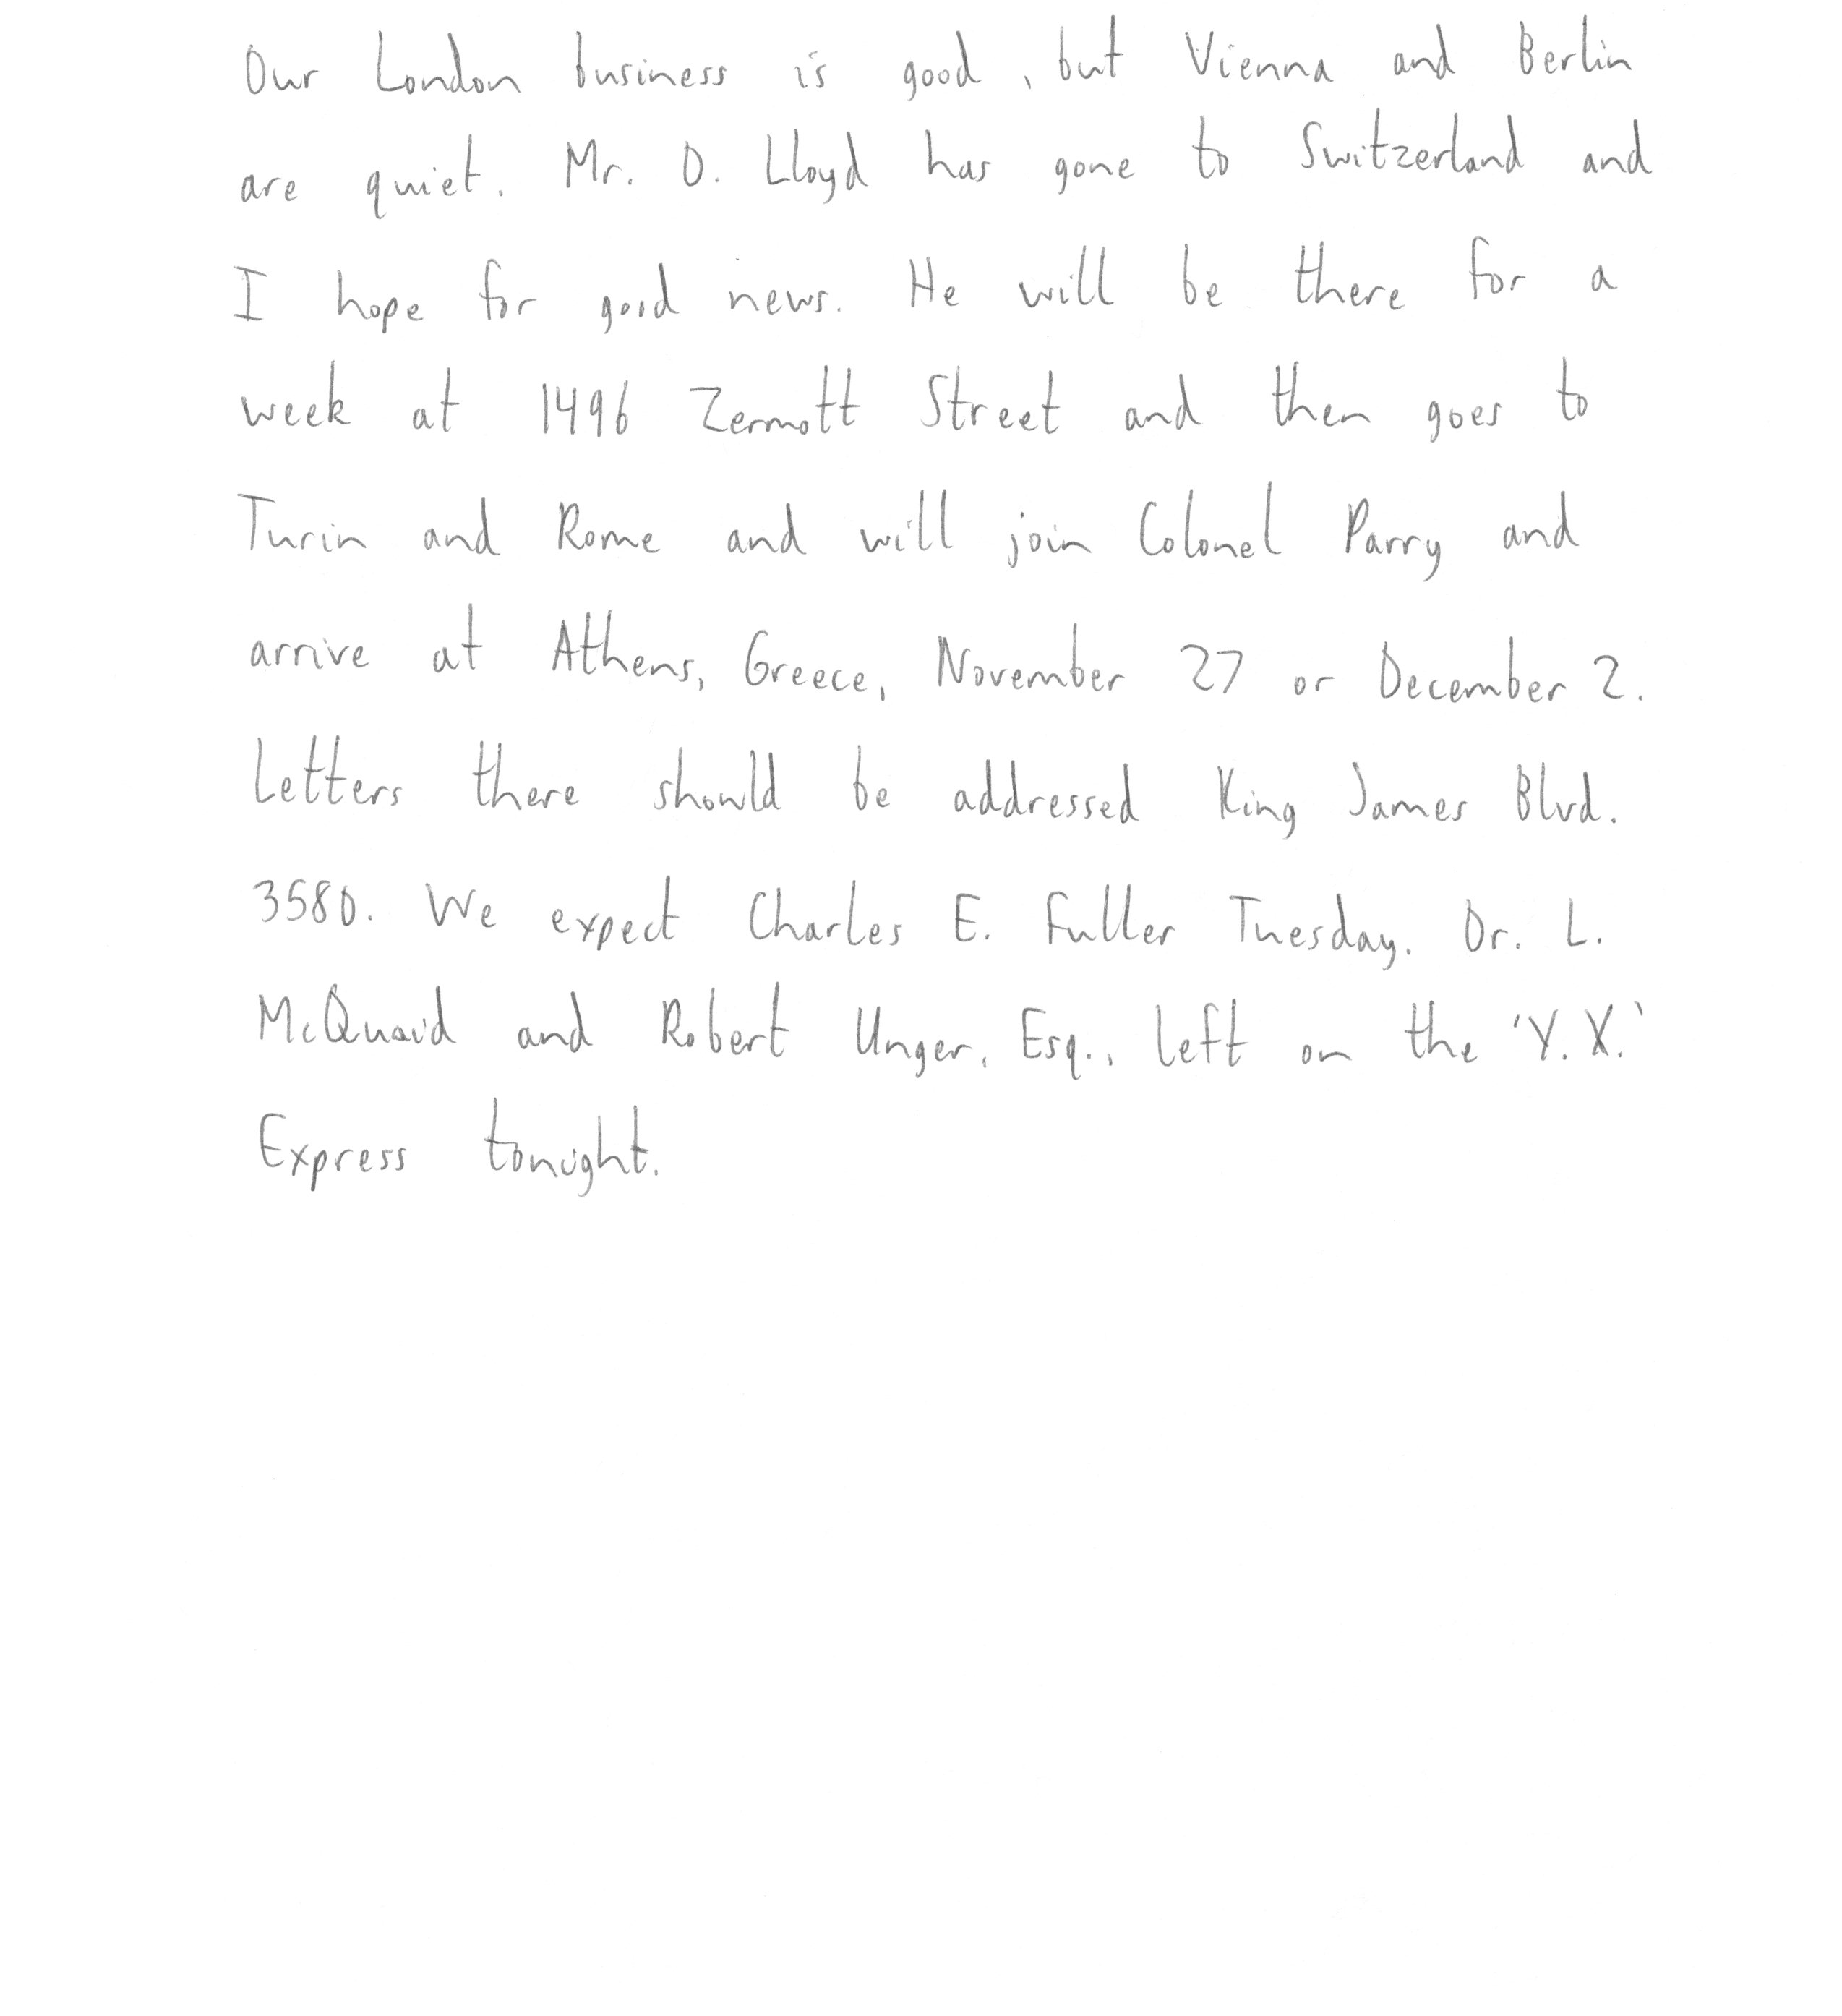 Our London business is good, but Vienna and Berlin
are quiet. Mr. D. Lloyd has gone to Switzerland and
I hope for good news. He will be there for a
week at 1496 Zermott Street and then goes to
Turin and Rome and will join Colonel Parry and
arrive at Athens, Greece, November 27 or December 2.
Letters there should be addressed King James Blvd.
3580. We expect Charles E. Fuller Tuesday. Dr. L.
McQuaid and Robert Unger, Esq., left on the 'Y.X.'
Express tonight.